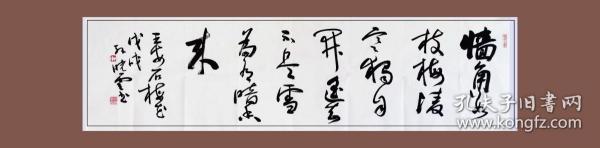 墙角数
枝梅凌
寒独自
开遥知
不是雪
为有暗香
来
王安石梅花
戊戌
孔夫子旧书网
www.kongfz.com